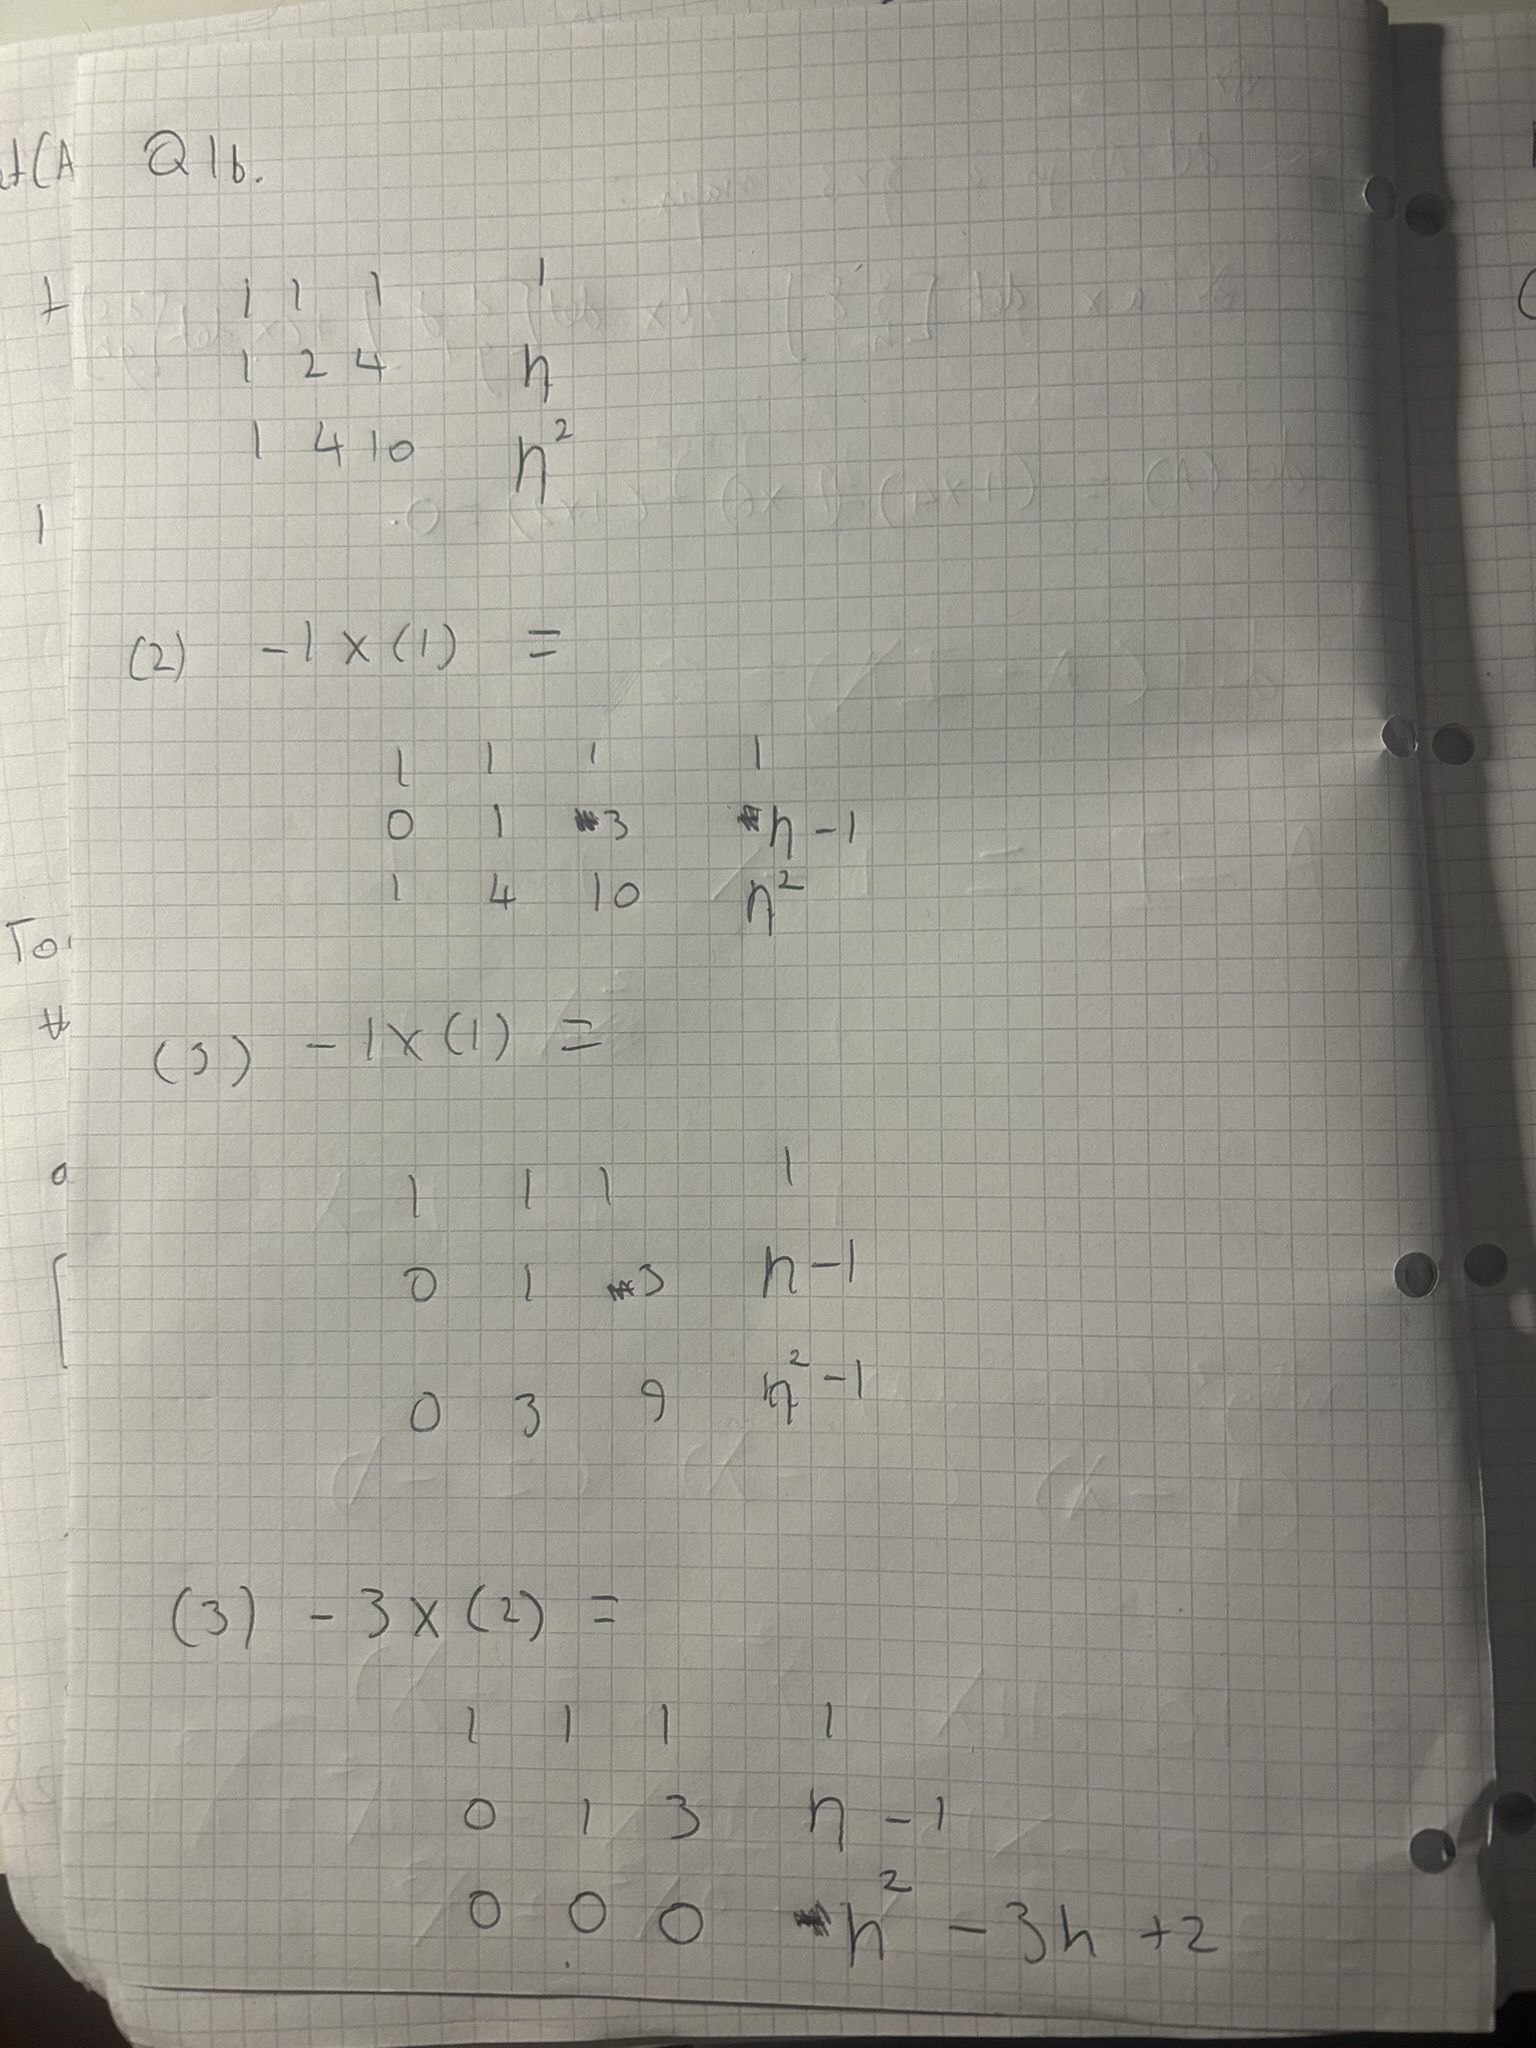 Q1b.
1 1 1 1
1 2 4 n
1 4 10 n²
(2) -1 x (1) =
1 1 1 1
0 1 3 n-1
1 4 10 n²
(3) -1 x (1) =
1 1 1 1
0 1 3 n-1
0 3 9 n²-1
(3) - 3 x (2) =
1 1 1 1
0 1 3 n-1
0 0 0 n² - 3n +2